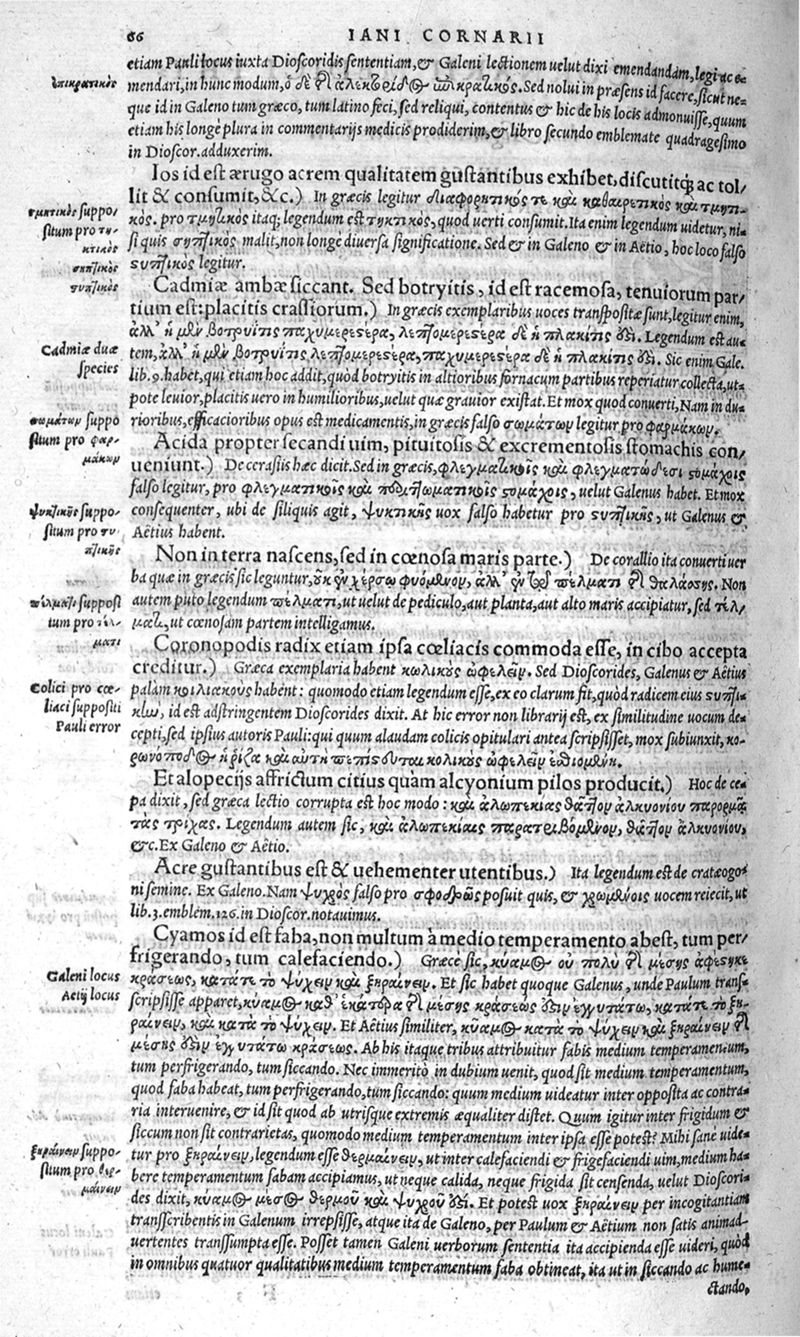 66
IANI CORNARII
etiam Pauli locus iuxta Dioscoridis sententiam, & Galeni lectionem uelut dixi emendandam, legi ac e-
ἐπικρατικὸς
mendari, in hunc modum, ὁ δὲ τῆ ἀλεκτορίδος ἐπικρατικός. Sed nolui in præsens id facere, sicut ne-
que id in Galeno tum græco, tum latino feci, sed reliqui, contentus & hic de his locis admonuisse, quum
etiam his longè plura in commentarijs medicis prodiderim, & libro secundo emblemate quadragesimo
in Dioscor. adduxerim.
Ios id est ærugo acrem qualitatem gustantibus exhibet, discutitq́; ac tol-
lit & consumit, &c.) In græcis legitur διαφορητικός τε καὶ καθαιρετικὸς καὶ τμητι-
τμητικὸς suppo-
situm pro τη-
κτικὸς
κὸς. pro τμητικὸς itaq; legendum est τηκτικὸς, quod uerti consumit. Ita enim legendum uidetur, ni-
si quis σηπτικὸς malit, non longè diuersa significatione. Sed & in Galeno & in Aëtio, hoc loco falso
σηπτικὸς
στυπτικὸς
στυπτικὸς legitur.
Cadmiæ ambæ siccant. Sed botryitis, id est racemosa, tenuiorum par-
tium est: placitis crassiorum.) In græcis exemplaribus uoces transpositæ sunt, legitur enim,
ἀλλ' ἡ μὲν βοτρυῖτις παχυμερεστέρα, λεπτομερεστέρα δὲ ἡ πλακῖτις ὅτι. Legendum est au-
Cadmiæ duæ
species
tem, ἀλλ' ἡ μὲν βοτρυῖτις λεπτομερεστέρα, παχυμερεστέρα δὲ ἡ πλακῖτις ὅτι. Sic enim Gale.
lib. 9. habet, qui etiam hoc addit, quòd botryitis in altioribus fornacum partibus reperiatur collecta, ut-
pote leuior, placitis uero in humilioribus, uelut quæ grauior existat. Et mox quod conuerti, Nam in du-
σωμάτων suppo
situm pro φαρ-
μάκων
rioribus, efficacioribus opus est medicamentis, in græcis falso σωμάτων legitur pro φαρμάκων.
Acida propter secandi uim, pituitosis & excrementosis stomachis con-
ueniunt.) De cerasiis hæc dicit. Sed in græcis, φλεγματικοῖς καὶ φλεγματώδεσι στομάχοις
falso legitur, pro φλεγματικοῖς καὶ περιττωματικοῖς στομάχοις, uelut Galenus habet. Et mox
ψυκτικῆς suppo-
situm pro στυ-
πτικῆς
consequenter, ubi de siliquis agit, ψυκτικῆς uox falso habetur pro στυπτικῆς, ut Galenus &
Aëtius habent.
Non in terra nascens, sed in cœnosa maris parte.) De corallio ita conuerti uer
ba quæ in græcis sic leguntur, οὐκ ἐν χέρσῳ φυόμενον, ἀλλ' ἐν τῷ πέλματι τῆ θαλάσσης. Non
πέλματι supposi
tum pro τέλ-
ματι
autem puto legendum πέλματι, ut uelut de pediculo, aut planta, aut alto maris accipiatur, sed τέλ-
ματι, ut cœnosam partem intelligamus.
Coronopodis radix etiam ipsa cœliacis commoda esse, in cibo accepta
creditur.) Græca exemplaria habent κωλικὸς ὠφελεῖν. Sed Dioscorides, Galenus & Aëtius
Colici pro cœ-
liaci suppositi
Pauli error
palàm κοιλιακοὺς habent: quomodo etiam legendum esse, ex eo clarum fit, quòd radicem eius στυπτι-
κὼ, id est adstringentem Dioscorides dixit. At hic error non librarij est, ex similitudine uocum de-
cepti, sed ipsius autoris Pauli: qui quum alaudam colicis opitulari antea scripsisset, mox subiunxit, κο-
ρωνοποδος ἡ ῥίζα καὶ αὐτὴ πεπίστευται κολικοὺς ὠφελεῖν ἐσθιομένη.
Et alopecijs affrictum citius quàm alcyonium pilos producit.) Hoc de ce-
pa dixit, sed græca lectio corrupta est hoc modo: καὶ ἀλωπεκίας θᾶττον ἀλκυονίου παρορμᾷ
τὰς τρίχας. Legendum autem sic, καὶ ἀλωπεκίαις παρατριβόμενον, θᾶττον ἀλκυονίου,
&c. Ex Galeno & Aëtio.
Acre gustantibus est & uehementer utentibus.) Ita legendum est de cratæogo-
ni semine. Ex Galeno. Nam ψυχρὸς falso pro σφοδρῶς posuit quis, & χρωμένοις uocem reiecit, ut
lib. 3. emblem. 126. in Dioscor. notauimus.
Cyamos id est faba, non multum à medio temperamento abest, tum per-
frigerando, tum calefaciendo.) Græce sic, κύαμος οὐ πολὺ τῆ μέσης ἀφέστηκε
Galeni locus
Aetij locus
κράσεως, κατάτε τὸ ψύχειν καὶ ξηραίνειν. Et sic habet quoque Galenus, unde Paulum trans-
scripsisse apparet, κύαμος καθ' ἑκάτερα τῆ μέσης κράσεώς ὅτιν ἐγγυτάτω, κατάτε τὸ ξη-
ραίνειν, καὶ κατὰ τὸ ψύχειν. Et Aëtius similiter, κύαμος κατὰ τὸ ψύχειν καὶ ξηραίνειν τῆ
μέσης ὅτιν ἐγγυτάτω κράσεως. Ab his itaque tribus attribuitur fabis medium temperamentum,
tum perfrigerando, tum siccando. Nec immeritò in dubium uenit, quod sit medium temperamentum,
quod faba habeat, tum perfrigerando, tum siccando: quum medium uideatur inter opposita ac contra-
ria interuenire, & id sit quod ab utrisque extremis æqualiter distet. Quum igitur inter frigidum &
siccum non sit contrarietas, quomodo medium temperamentum inter ipsa esse potest? Mihi sanè uide-
ξηραίνειν suppo-
situm pro θερ-
μαίνειν
tur pro ξηραίνειν, legendum esse θερμαίνειν, ut inter calefaciendi & frigefaciendi uim, medium ha-
bere temperamentum fabam accipiamus, ut neque calida, neque frigida sit censenda, uelut Dioscori-
des dixit, κύαμος μέσος θερμοῦ καὶ ψυχροῦ ὅτι. Et potest uox ξηραίνειν per incogitantiam
transscribentis in Galenum irrepsisse, atque ita de Galeno, per Paulum & Aëtium non satis animad-
uertentes transsumpta esse. Posset tamen Galeni uerborum sententia ita accipienda esse uideri, quòd
in omnibus quatuor qualitatibus medium temperamentum faba obtineat, ita ut in siccando ac hume-
ctando,